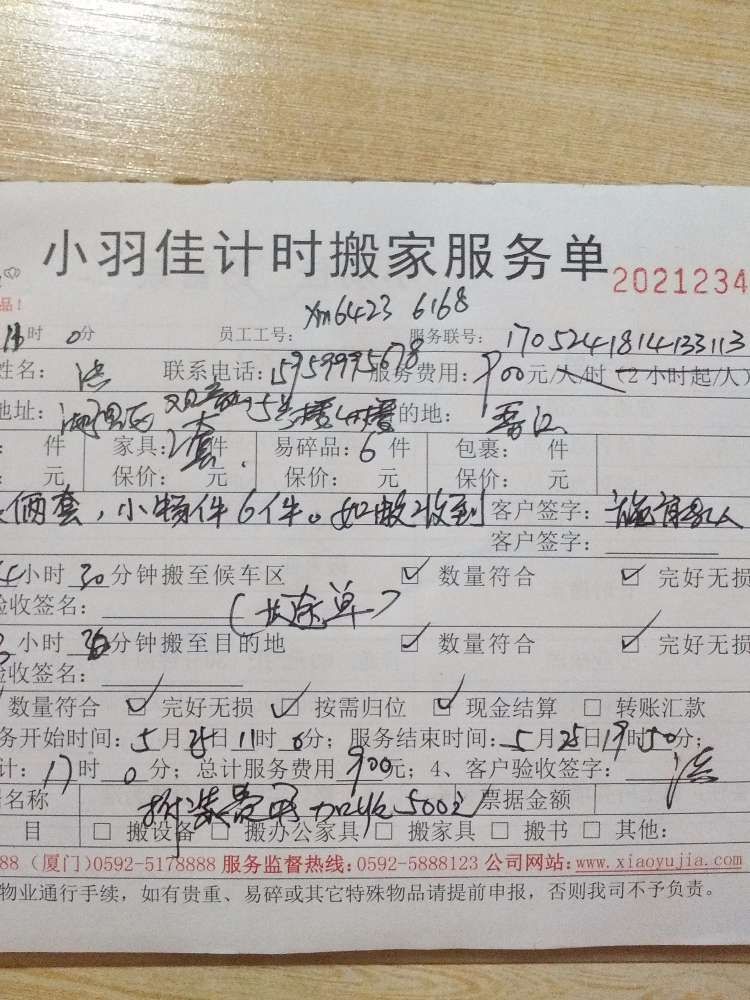 小羽佳计时搬家服务单 2021234
品！
时 0分 员工工号：xm6423 6168 服务联号：1705241814133113
姓名： 联系电话：15959995678 服务费用：900元/人/时（2小时起/人）
地址：湖里区 的地：晋江
件 家具：2套件 易碎品：6件 包裹： 件
元 保价： 元 保价： 元 保价： 元
俩套，小物件6件。如数收到 客户签字：
客户签字：
小时30分钟搬至候车区 ☑ 数量符合 ☑ 完好无损
验收签名： （长途单）
小时 分钟搬至目的地 ☑ 数量符合 ☑ 完好无损
验收签名：
数量符合 ☑ 完好无损 ☑ 按需归位 ☑ 现金结算 □ 转账汇款
务开始时间：5月25日11时0分；服务结束时间：5月25日19时50分；
计：17时0分；总计服务费用900元；4、客户验收签字：
名称 拆装费另加收500元 票据金额
目 □ 搬设备 □ 搬办公家具 □ 搬家具 □ 搬书 □ 其他：
888（厦门）0592-5178888 服务监督热线：0592-5888123 公司网站：www.xiaoyujia.com
物业通行手续，如有贵重、易碎或其它特殊物品请提前申报，否则我司不予负责。